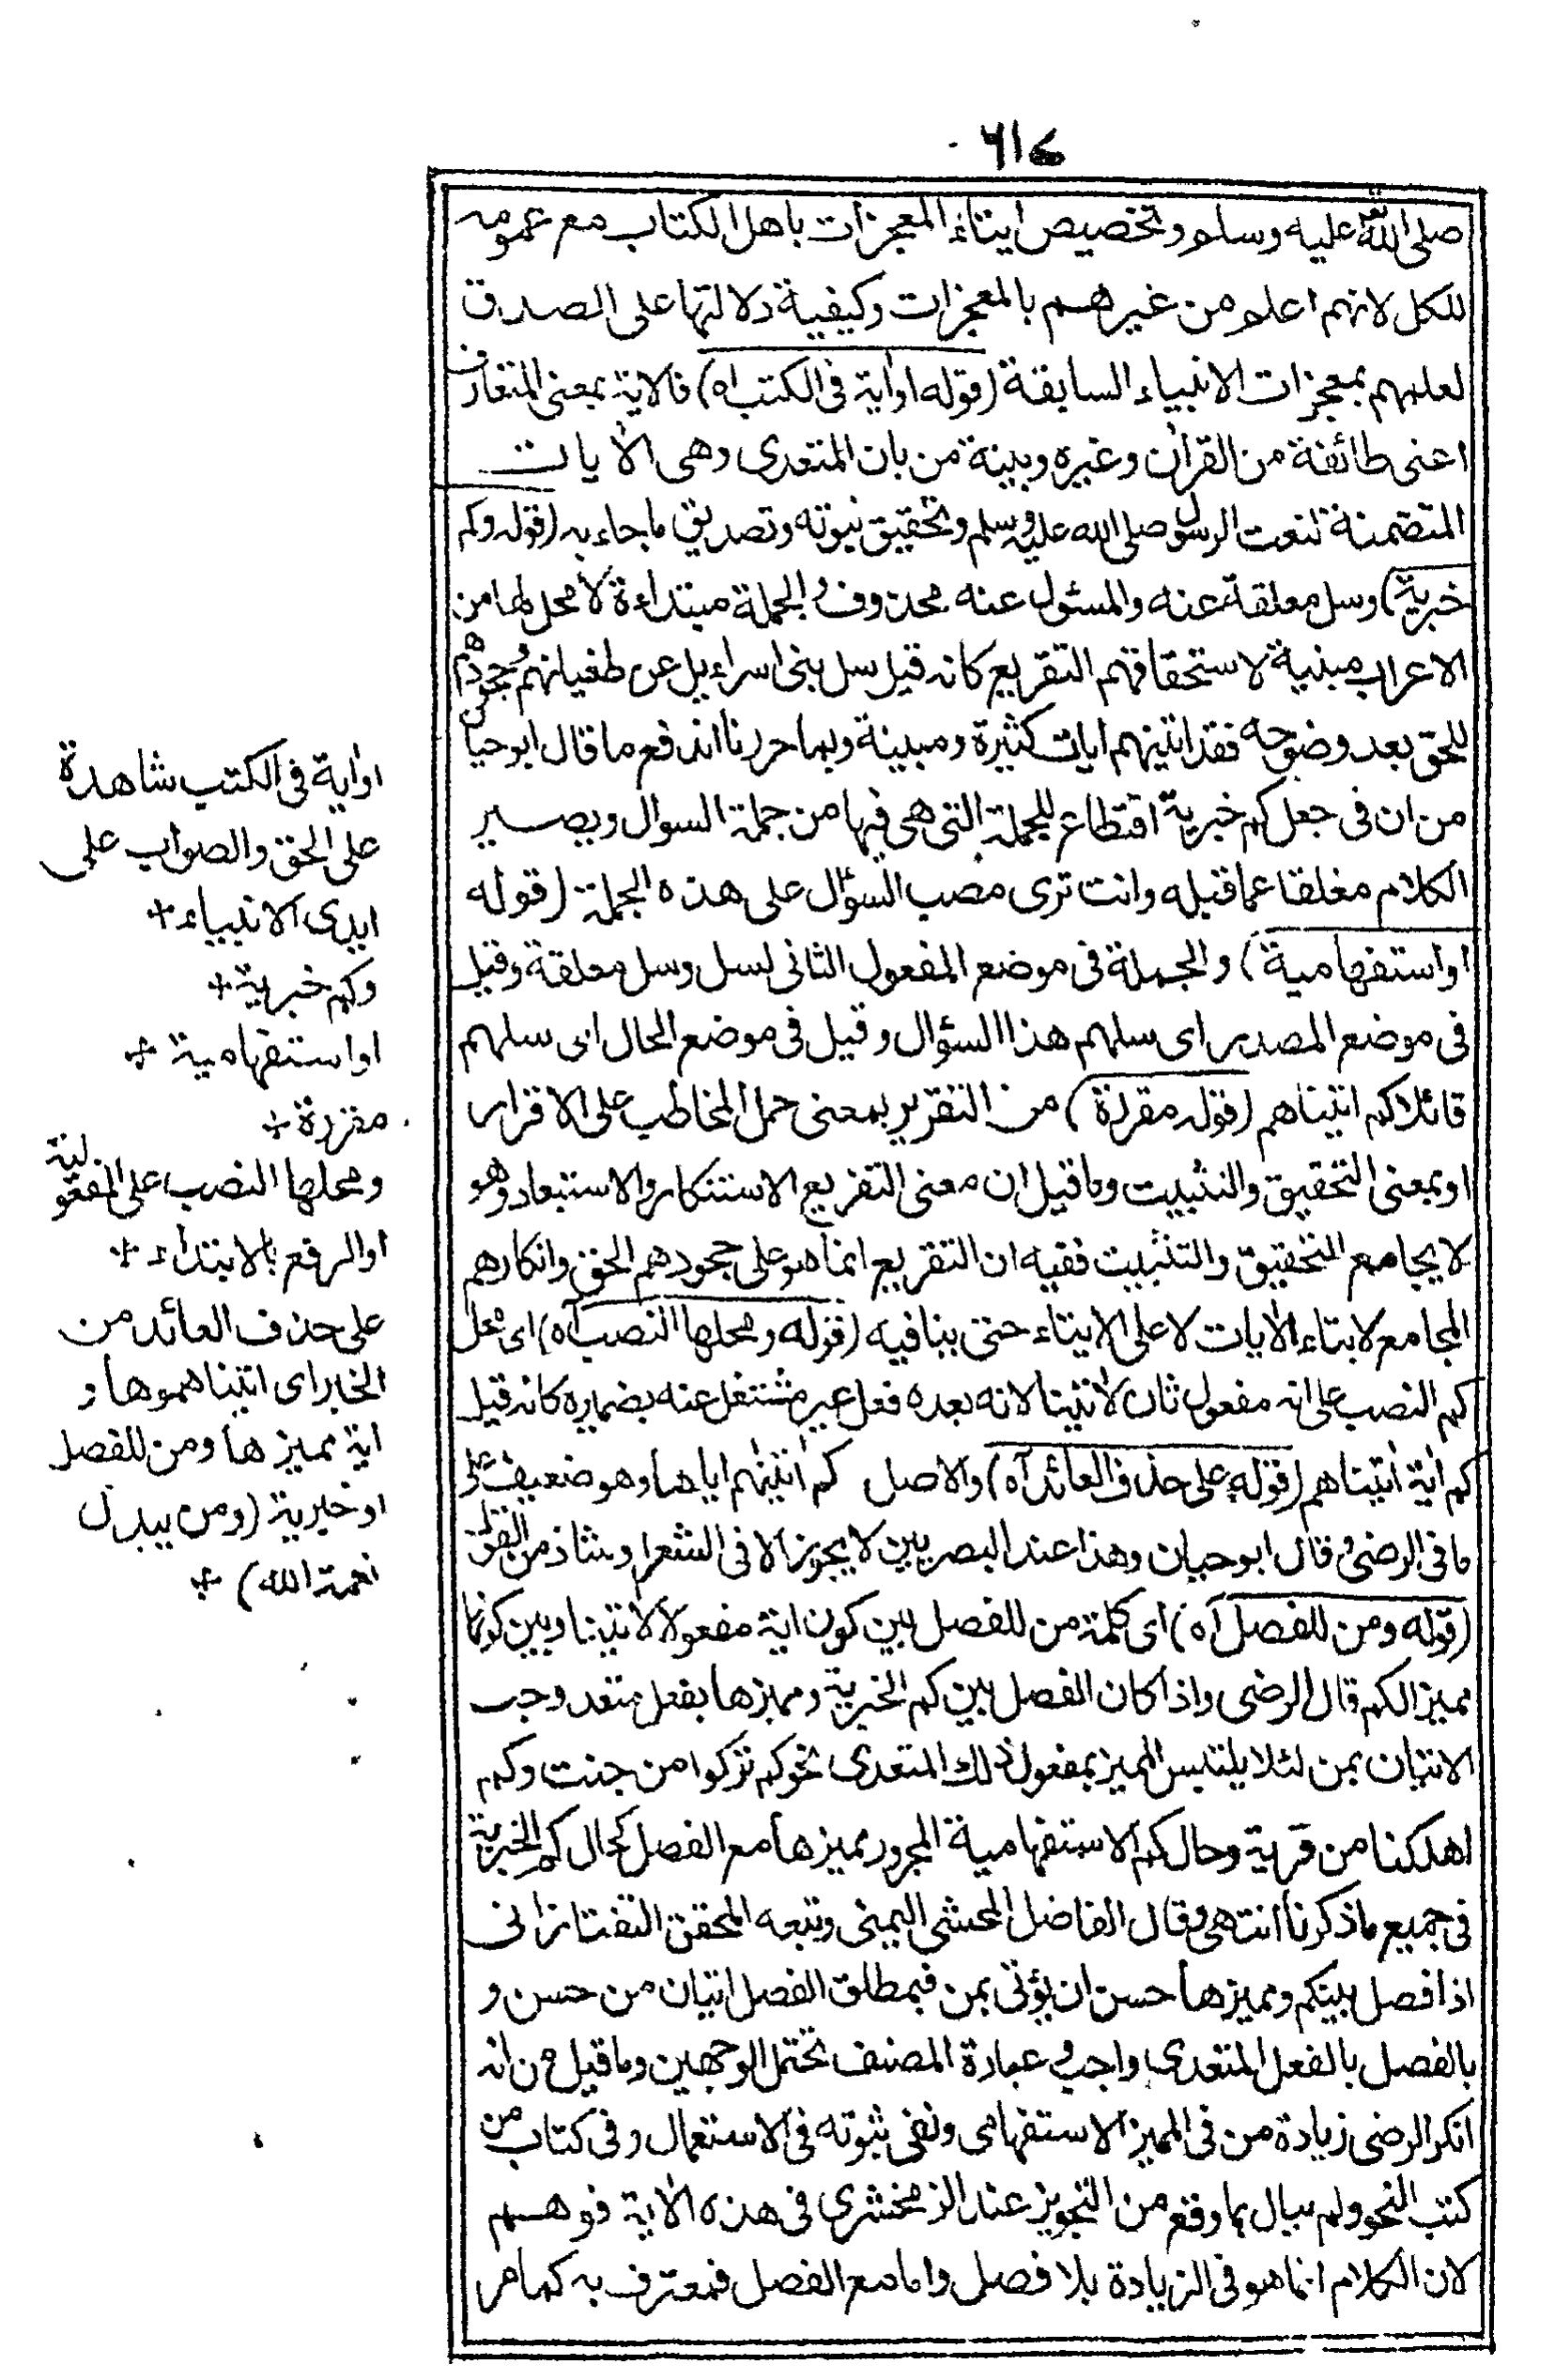 ۶۱۷
صلى الله عليه وسلم وتخصيص ايتاء المعجزات باهل الكتاب مع عمومه
للكل لانهم اعلم من غيرهم بالمعجزات وكيفية دلالتها على الصدق
لعلمهم بمعجزات الانبياء السابقة (قوله اواية فى الكتب اه) فالاية بمعنى المتعارف
اعنى طائفة من القرآن وغيره وبينة من بان المتعدى وهى الأيات
المتضمنة لنعت الرسول صلى الله عليه وسلم وتحقيق نبوته وتصديق ما جاء به (قوله وكم
خبرية) وسل معلقة عنه والمسئول عنه محذوف والجملة مبتداءة لا محل لها من
الاعراب مبنية لاستحقاقهم التقريع كانه قيل سل بنى اسراءيل عن طغيانهم وجحودهم
للحق بعد وضوحه فقد اتينهم ايات كثيرة ومبينة وبما حررنا اندفع ما قال ابو حيان
من ان فى جعل كم خبرية اقتطاع للجملة التى هى فيها من جملة السوال ويصير
الكلام مغلقا عما قبله وانت ترى مصب السؤال على هذه الجملة (قوله
او استفهامية) والجملة فى موضع المفعول الثانى لسل وسل معلقة وقيل
فى موضع المصدر اى سلهم هذا السؤال وقيل فى موضع الحال اى سلهم
قائلا كم اتيناهم (قوله مقررة) من التقرير بمعنى حمل المخاطب على الاقرار
او بمعنى التحقيق والتثبيت وما قيل ان معنى التقريع الاستنكار والاستبعاد وهو
لا يجامع التحقيق والتثبيت ففيه ان التقريع انما هو على جحودهم الحق وانكارهم
المجامع لايتاء الأيات لا على الايتاء حتى ينافيه (قوله ومحلها النصب آه) اى محل
كم النصب على انه مفعول ثان لأتينا لانه بعده فعل غير مشتغل عنه بضميره كانه قيل
كم اية اتيناهم (قوله على حذف العائد آه) والاصل كم اتينهم اياها وهو ضعيف على
ما فى الرضى وقال ابو حيان وهذا عند البصريين لا يجوز الا فى الشعر او شاذ من القرآن
(قوله ومن للفصل آه) اى كلمة من للفصل بين كون اية مفعولا لأتينا وبين كونها
مميز الكم قال الرضى واذا كان الفصل بين كم الخبرية ومميزها بفعل متعد وجب
الاتيان بمن لئلا يلتبس المميز بمفعول ذلك المتعدى نحو كم تركوا من جنت وكم
اهلكنا من قرية وحال كم الاستفهامية المجرور مميزها مع الفصل كحال كم الخبرية
فى جميع ما ذكرنا انتهى وقال الفاضل المحشى اليمنى وتبعه المحقق التفتازانى
اذا فصل بين كم ومميزها حسن ان يؤتى بمن فبمطلق الفصل اتيان من حسن و
بالفصل بالفعل المتعدى واجب وعبارة المصنف تحتمل الوجهين وما قيل من انه
انكر الرضى زيادة من فى المميز الاستفهامى ونفى ثبوته فى الاستعمال وفى كتاب من
كتب النحو ولم يبال بما وقع من التجويز عند الزمخشرى فى هذه الأية فوهم
لان الكلام انما هو فى الزيادة بلا فصل واما مع الفصل فمعترف به كما مر
اواية فى الكتب شاهدة
على الحق والصواب على
ايدى الانبياء +
وكم خبرية +
او استفهامية +
مقررة +
ومحلها النصب على المفعولية
او الرفع بالابتداء +
على حذف العائد من
الخبر اى اتيناهموها و
اية مميزها ومن للفصل
او خبرية (ومن يبدل
نعمة الله) +